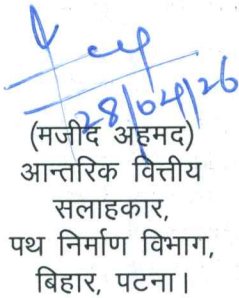 28/04/26
(मजीद अहमद)
आन्तरिक वित्तीय
सलाहकार,
पथ निर्माण विभाग,
बिहार, पटना।